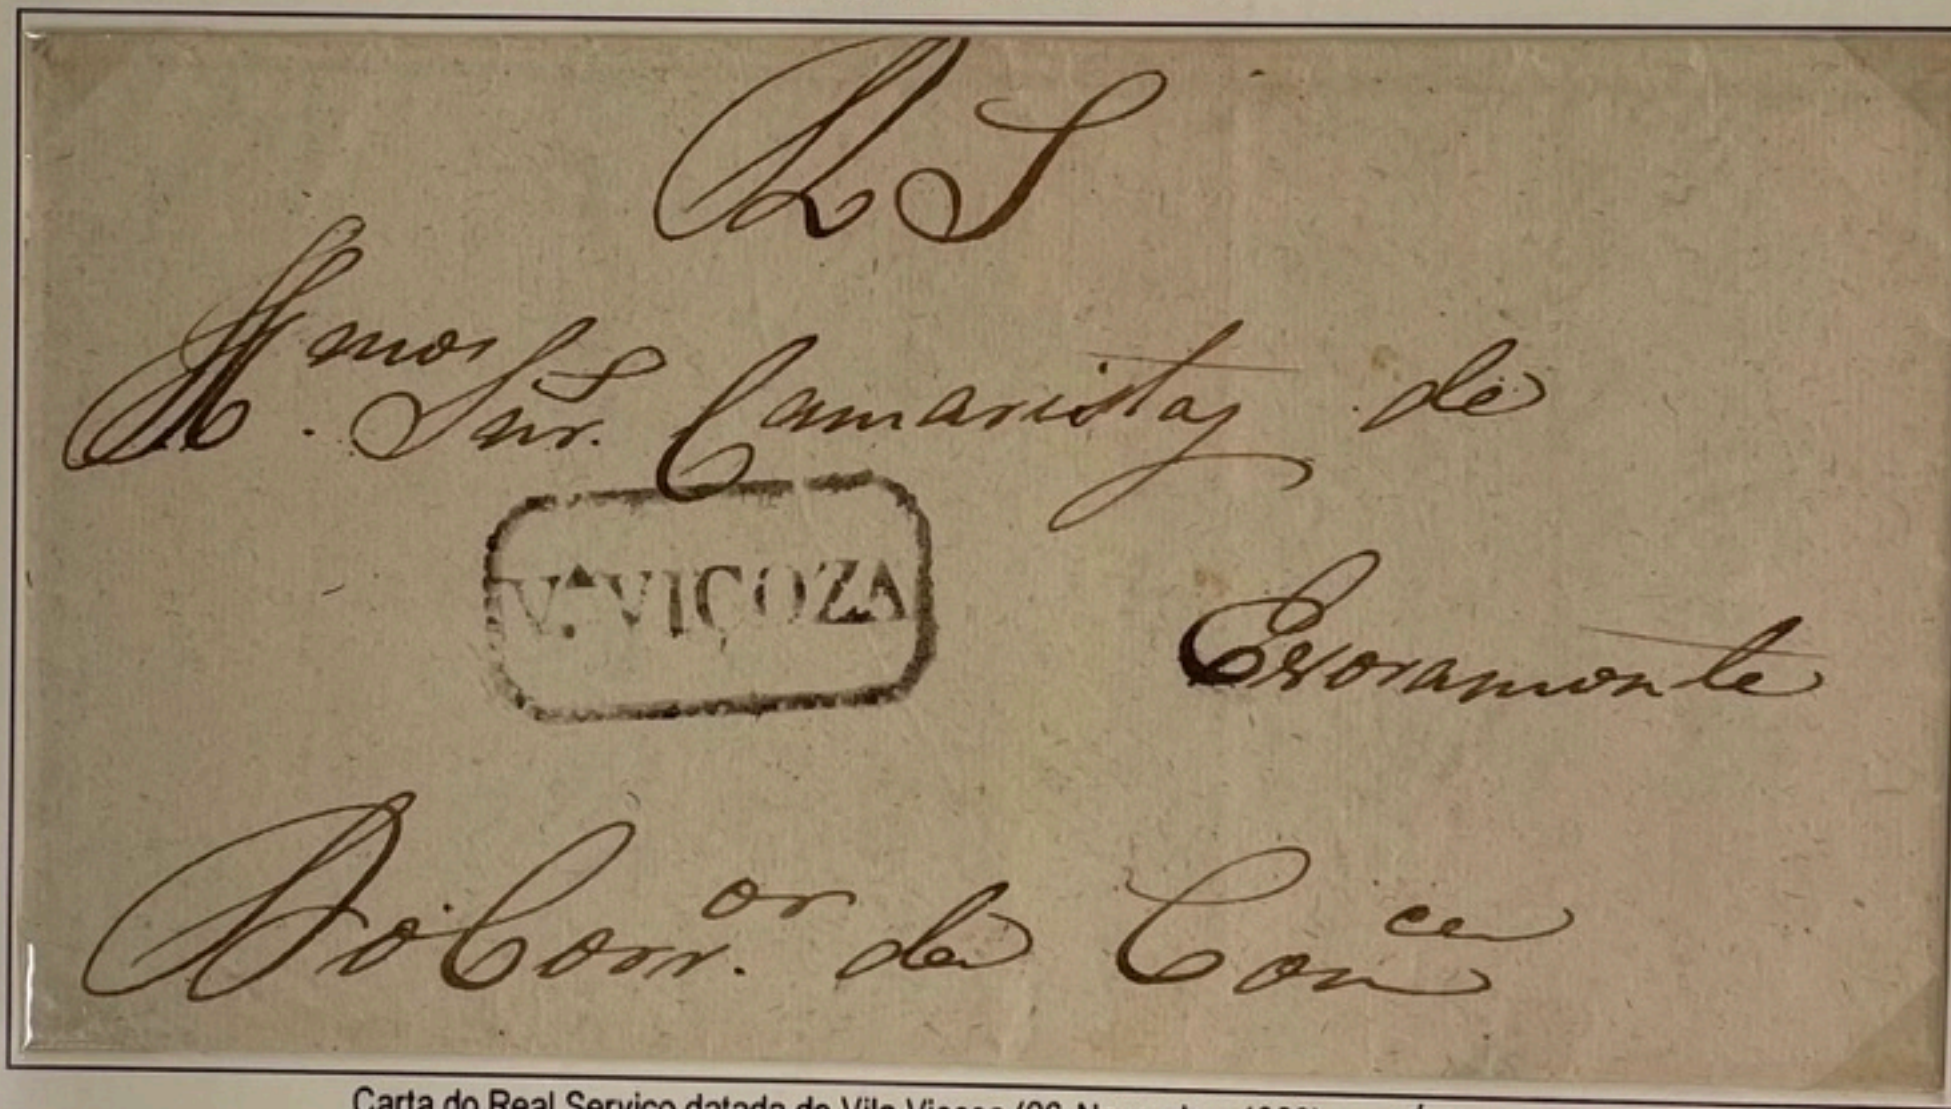 R S
Il.mos Snrs. Camaristas de
V.A VIÇOZA
Evoramonte
Do Corr.or de Con.cam
Carta do Real Serviço datada de Vila Viçosa